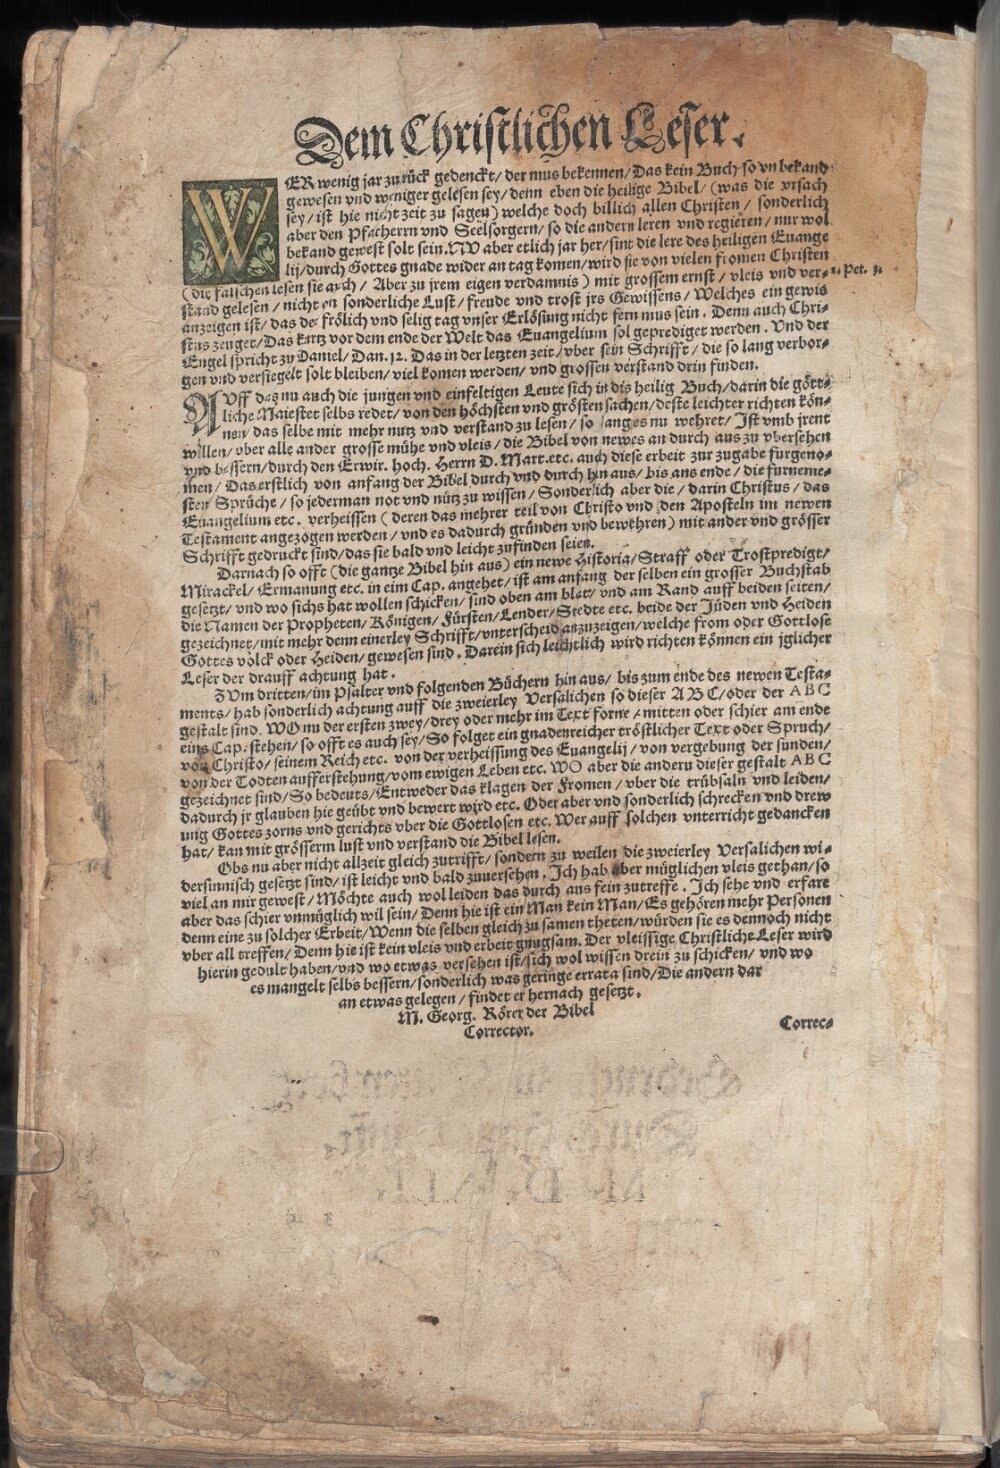 Dem Christlichen Leser.
WER wenig jar zu rück gedenckt/ der mus bekennen/ Das kein Buch so vn bekand
gewesen vnd weniger gelesen sey/ denn eben die heilige Bibel/ (was die vrsach
sey/ ist hie nicht zeit zu sagen) welche doch billich allen Christen/ sonderlich
aber den Pfarherrn vnd Seelsorgern/ so die andern leren vnd regieren/ nur wol
bekand gewest solt sein. NV aber etlich jar her/ sint die lere des heiligen Euange
lij/ durch Gottes gnade wider an tag komen/ wird sie von vielen fromen Christen
(die falschen lesen sie auch/ Aber zu jrem eigen verdamnis) mit grossem ernst/ vleis vnd ver- 2. Pet. 3.
stand gelesen/ nicht on sonderliche Lust/ freude vnd trost jrs Gewissens/ Welches ein gewis
anzeigen ist/ das der frölich vnd selig tag vnser Erlösung nicht fern mus sein. Denn auch Chri-
stus zeuget/ Das kurtz vor dem ende der Welt das Euangelium sol geprediget werden. Vnd der
Engel spricht zu Daniel/ Dan. 12. Das in der letzten zeit/ vber sein Schrifft/ die so lang verbor-
gen vnd versiegelt solt bleiben/ viel komen werden/ vnd grossen verstand drin finden.
AVff das nu auch die jungen vnd einfeltigen Leute sich in dis heilig Buch/ darin die gött-
liche Maiestet selbs redet/ von den höchsten vnd grösten sachen/ deste leichter richten kön-
nen/ das selbe mit mehr nutz vnd verstand zu lesen/ so lang es nu wehret/ Ist vmb jrent
willen/ vber alle ander grosse mühe vnd vleis/ die Bibel von newes an durch aus zu vbersehen
vnd bessern/ durch den Erwir. hoch. Herrn D. Mart. etc. auch diese erbeit zur zugabe furgeno-
men/ Das erstlich von anfang der Bibel durch vnd durch hin aus/ bis ans ende/ die furneme-
sten Sprüche/ so jederman not vnd nütz zu wissen/ Sonderlich aber die/ darin Christus/ das
Euangelium etc. verheissen (deren das mehrer teil von Christo vnd den Aposteln im newen
Testament angezogen werden/ vnd es dadurch gründen vnd bewehren) mit ander vnd grösser
Schrifft gedruckt sind/ das sie bald vnd leicht zufinden seien.
Darnach so offt (die gantze Bibel hin aus) ein newe Historia/ Straff oder Trostpredigt/
Mirackel/ Ermanung etc. in eim Cap. angehet/ ist am anfang der selben ein grosser Buchstab
gesetzt/ vnd wo sichs hat wollen schicken/ sind oben am blat/ vnd am Rand auff beiden seiten/
die Namen der Propheten/ Königen/ Fürsten/ Lender/ Stedte etc. beide der Jüden vnd Heiden
gezeichnet/ mit mehr denn einerley Schrifft/ vnterscheid anzuzeigen/ welche from oder Gottlose
Gottes völck oder Heiden/ gewesen sind. Darein sich leichtlich wird richten können ein jglicher
Leser der drauff achtung hat.
ZVm dritten/ im Psalter vnd folgenden Büchern hin aus/ bis zum ende des newen Testa-
ments/ hab sonderlich achtung auff die zweierley Versalichen so dieser A B C/ oder der A B C
gestalt sind. WO nu der ersten zwey/ drey oder mehr im Text forne/ mitten oder schier am ende
eins Cap. stehen/ so offt es auch sey/ So folget ein gnadenreicher tröstlicher Text oder Spruch/
von Christo/ seinem Reich etc. von der verheissung des Euangelij/ von vergebung der sunden/
von der Todten aufferstehung/ vom ewigen Leben etc. WO aber die andern dieser gestalt A B C
gezeichnet sind/ So bedeuts/ Entweder das klagen der Fromen/ vber die trübsaln vnd leiden/
dadurch jr glauben hie geübt vnd bewert wird etc. Oder aber vnd sonderlich schrecken vnd drew
ung Gottes zorns vnd gerichts vber die Gottlosen etc. Wer auff solchen vnterricht gedancken
hat/ kan mit grösserm lust vnd verstand die Bibel lesen.
Obs nu aber nicht allzeit gleich zutrifft/ sondern zu weilen die zweierley Versalichen wi-
dersinnisch gesetzt sind/ ist leicht vnd bald zuuersehen. Ich hab aber müglichen vleis gethan/ so
viel an mir gewest/ Möchte auch wol leiden das durch ans fein zutreffe. Ich sehe vnd erfare
aber das schier vnmüglich wil sein/ Denn hie ist ein Man kein Man/ Es gehören mehr Personen
denn eine zu solcher Erbeit/ Wenn die selben gleich zu samen theten/ würden sie es dennoch nicht
vber all treffen/ Denn hie ist kein vleis vnd erbeit gnugsam. Der vleissige Christliche Leser wird
hierin gedult haben/ vnd wo etwas versehen ist/ sich wol wissen drein zu schicken/ vnd wo
es mangelt selbs bessern/ sonderlich was geringe errata sind/ Die andern dar
an etwas gelegen/ findet er hernach gesetzt.
M. Georg. Rörer der Bibel
Corrector.
Correc-